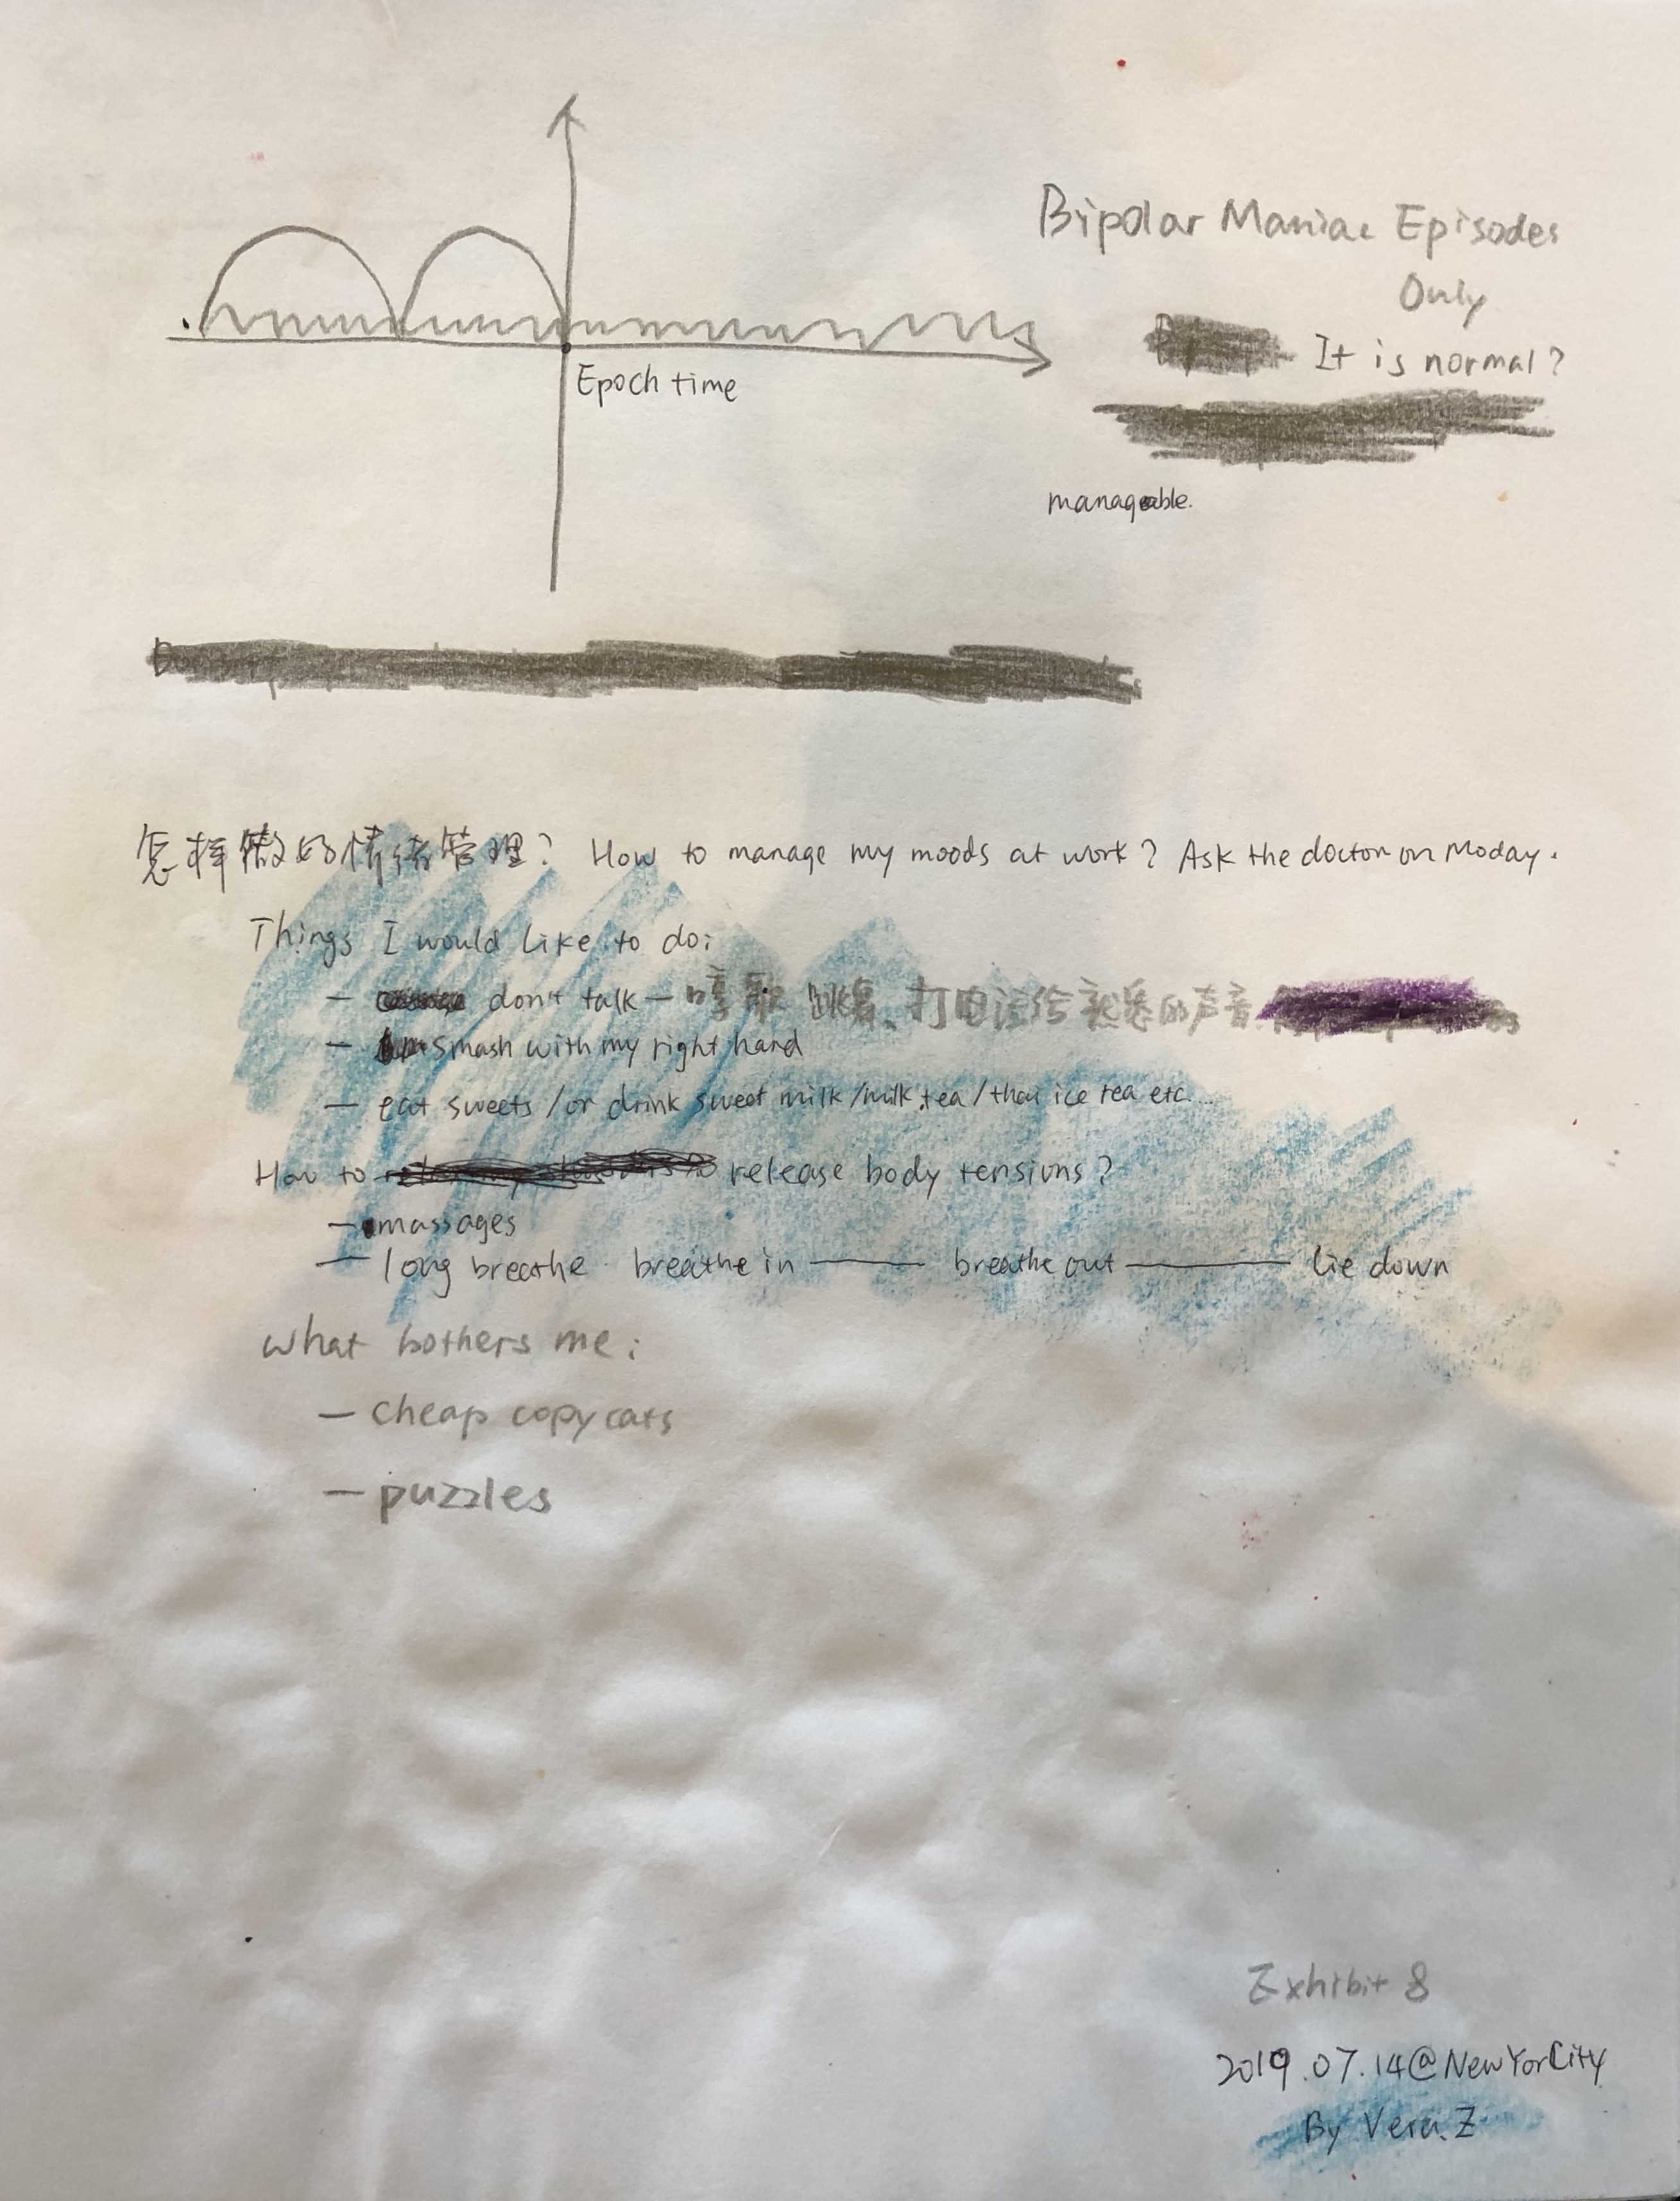 Bipolar Maniac Episodes
Only
It is normal?
Epoch time
manageable.
怎样做好情绪管理? How to manage my moods at work? Ask the doctor on Moday.
Things I would like to do:
— don't talk — 唱歌 跳舞、打电话给熟悉的声音
— smash with my right hand
— eat sweets / or drink sweet milk / milk tea / thai ice tea etc...
How to release body tensions?
— massages
— long breathe breathe in —— breathe out —— lie down
What bothers me:
— cheap copycats
— puzzles
Exhibit 8
2019.07.14@NewYorCity
By Vera.Z